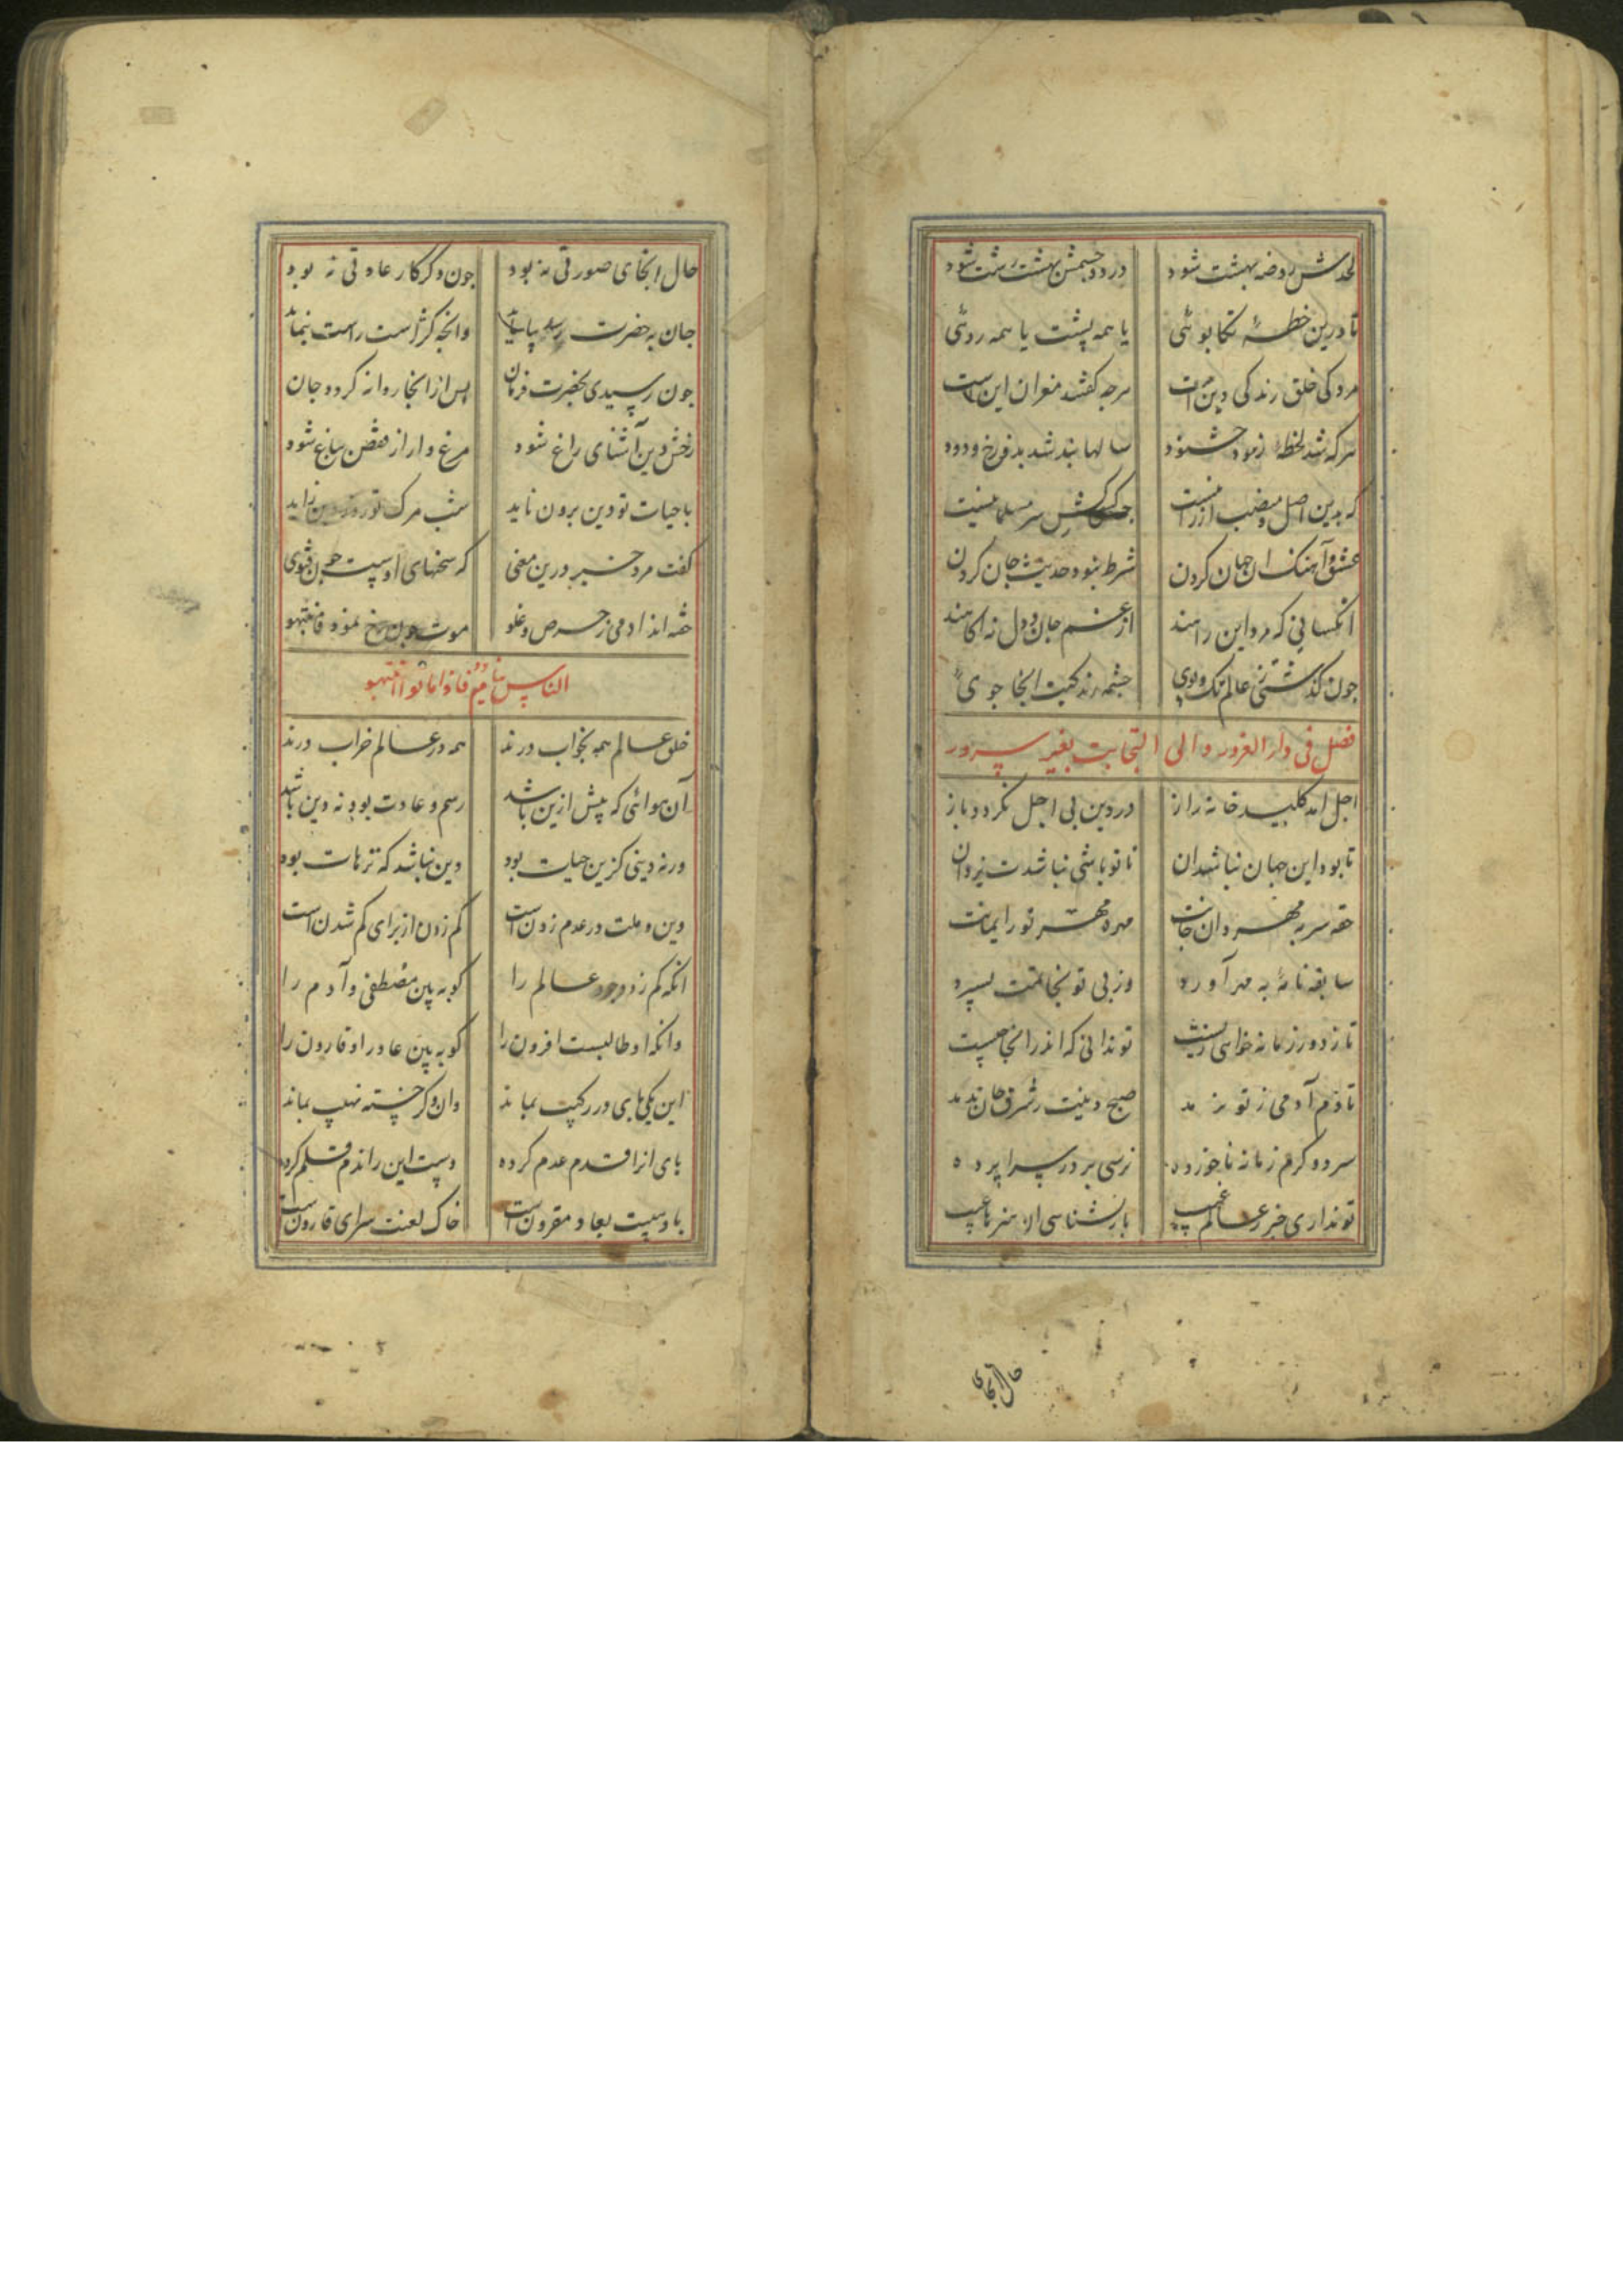 لحدش روضه بهشت شود در دو چشمش بهشت زشت شود
تا درین خطهٔ تکاپوئی یا همه پشت یا همه روئی
مردکی خلق زندگی دین است هرچه گفتند مغزان این است
هرکه شد لحظهٔ زمود خشنود سالها بند شد بدوزخ و دود
که بدین اصل و منصب ارزانیست
عشق و آهنک ان جهان کردن شرط نبود حدیث جان کردن
انکسانی که مرد این راهند از غم جان و دل نه اکاهند
چون کذشتی ز عالم تک و پوی چشمه زندکیت انجا جوی
فصل فی دار الغرور والی
اجل امد کلید خانه راز در دین بی اجل نکردد باز
تا بود این جهان نباشد ان تا تو باشی نباشدت یزدان
حقه سر به مهر دان جانت مهره مهر تو را ایمانت
سابقه نامهٔ به مهر آورد وز پی تو بخاتمت بسپرد
تا ز دور زمانه خواهی زیست تو ندانی که اندر انجا چیست
تا دم آدمی ز تو نرمد صبح دینت ز شرق جان ندمد
سرد و کرم زمانه ناخورده نرسی بر در سراپرده
تو نداری خبر ز عالم غیب باز نشناسی از هنرها عیب
حال انجای
حال انجای صورتی نه بود چون دکر کار عادتی نه بود
جان به حضرت رسد بیاساید وانچه کژ است راست بنماید
چون رسیدی بحضرت فرمان پس از انجا روانه کردد جان
رخش دین آشنای راغ شود مرغ وار از قفص بباغ شود
با حیات تو دین برون ناید شب مرک تو روز دین زاید
کفت مرد خبیر درین معنی که سخنهای اوست چون فتوی
خفته اند ادمی ز حرص و غلو موت چون رخ نمود فانتبهوا
الناس نیام فاذا ماتوا انتبهوا
خلق عالم همه بخواب درند همه در عالم خراب درند
آن هوائی که پیش ازین باشد رسم و عادت بود نه دین باشد
ورنه دینی کزین حیات بود دین نباشد که ترهات بود
دین و ملت در عدم زدن است کم زدن از برای کم شدن است
انکه کم زد وجود عالم را کو به بین مصطفی و آدم را
وانکه او طالبست افزون را کو به بین عاد را و قارون را
این یکی پای در رکیب بماند وان دکر خسته نهیب بماند
پای انرا قدم عدم کرده دست این را ندم قلم کرده
باد سست بعاد مقرون است خاک لعنت سرای قارون است